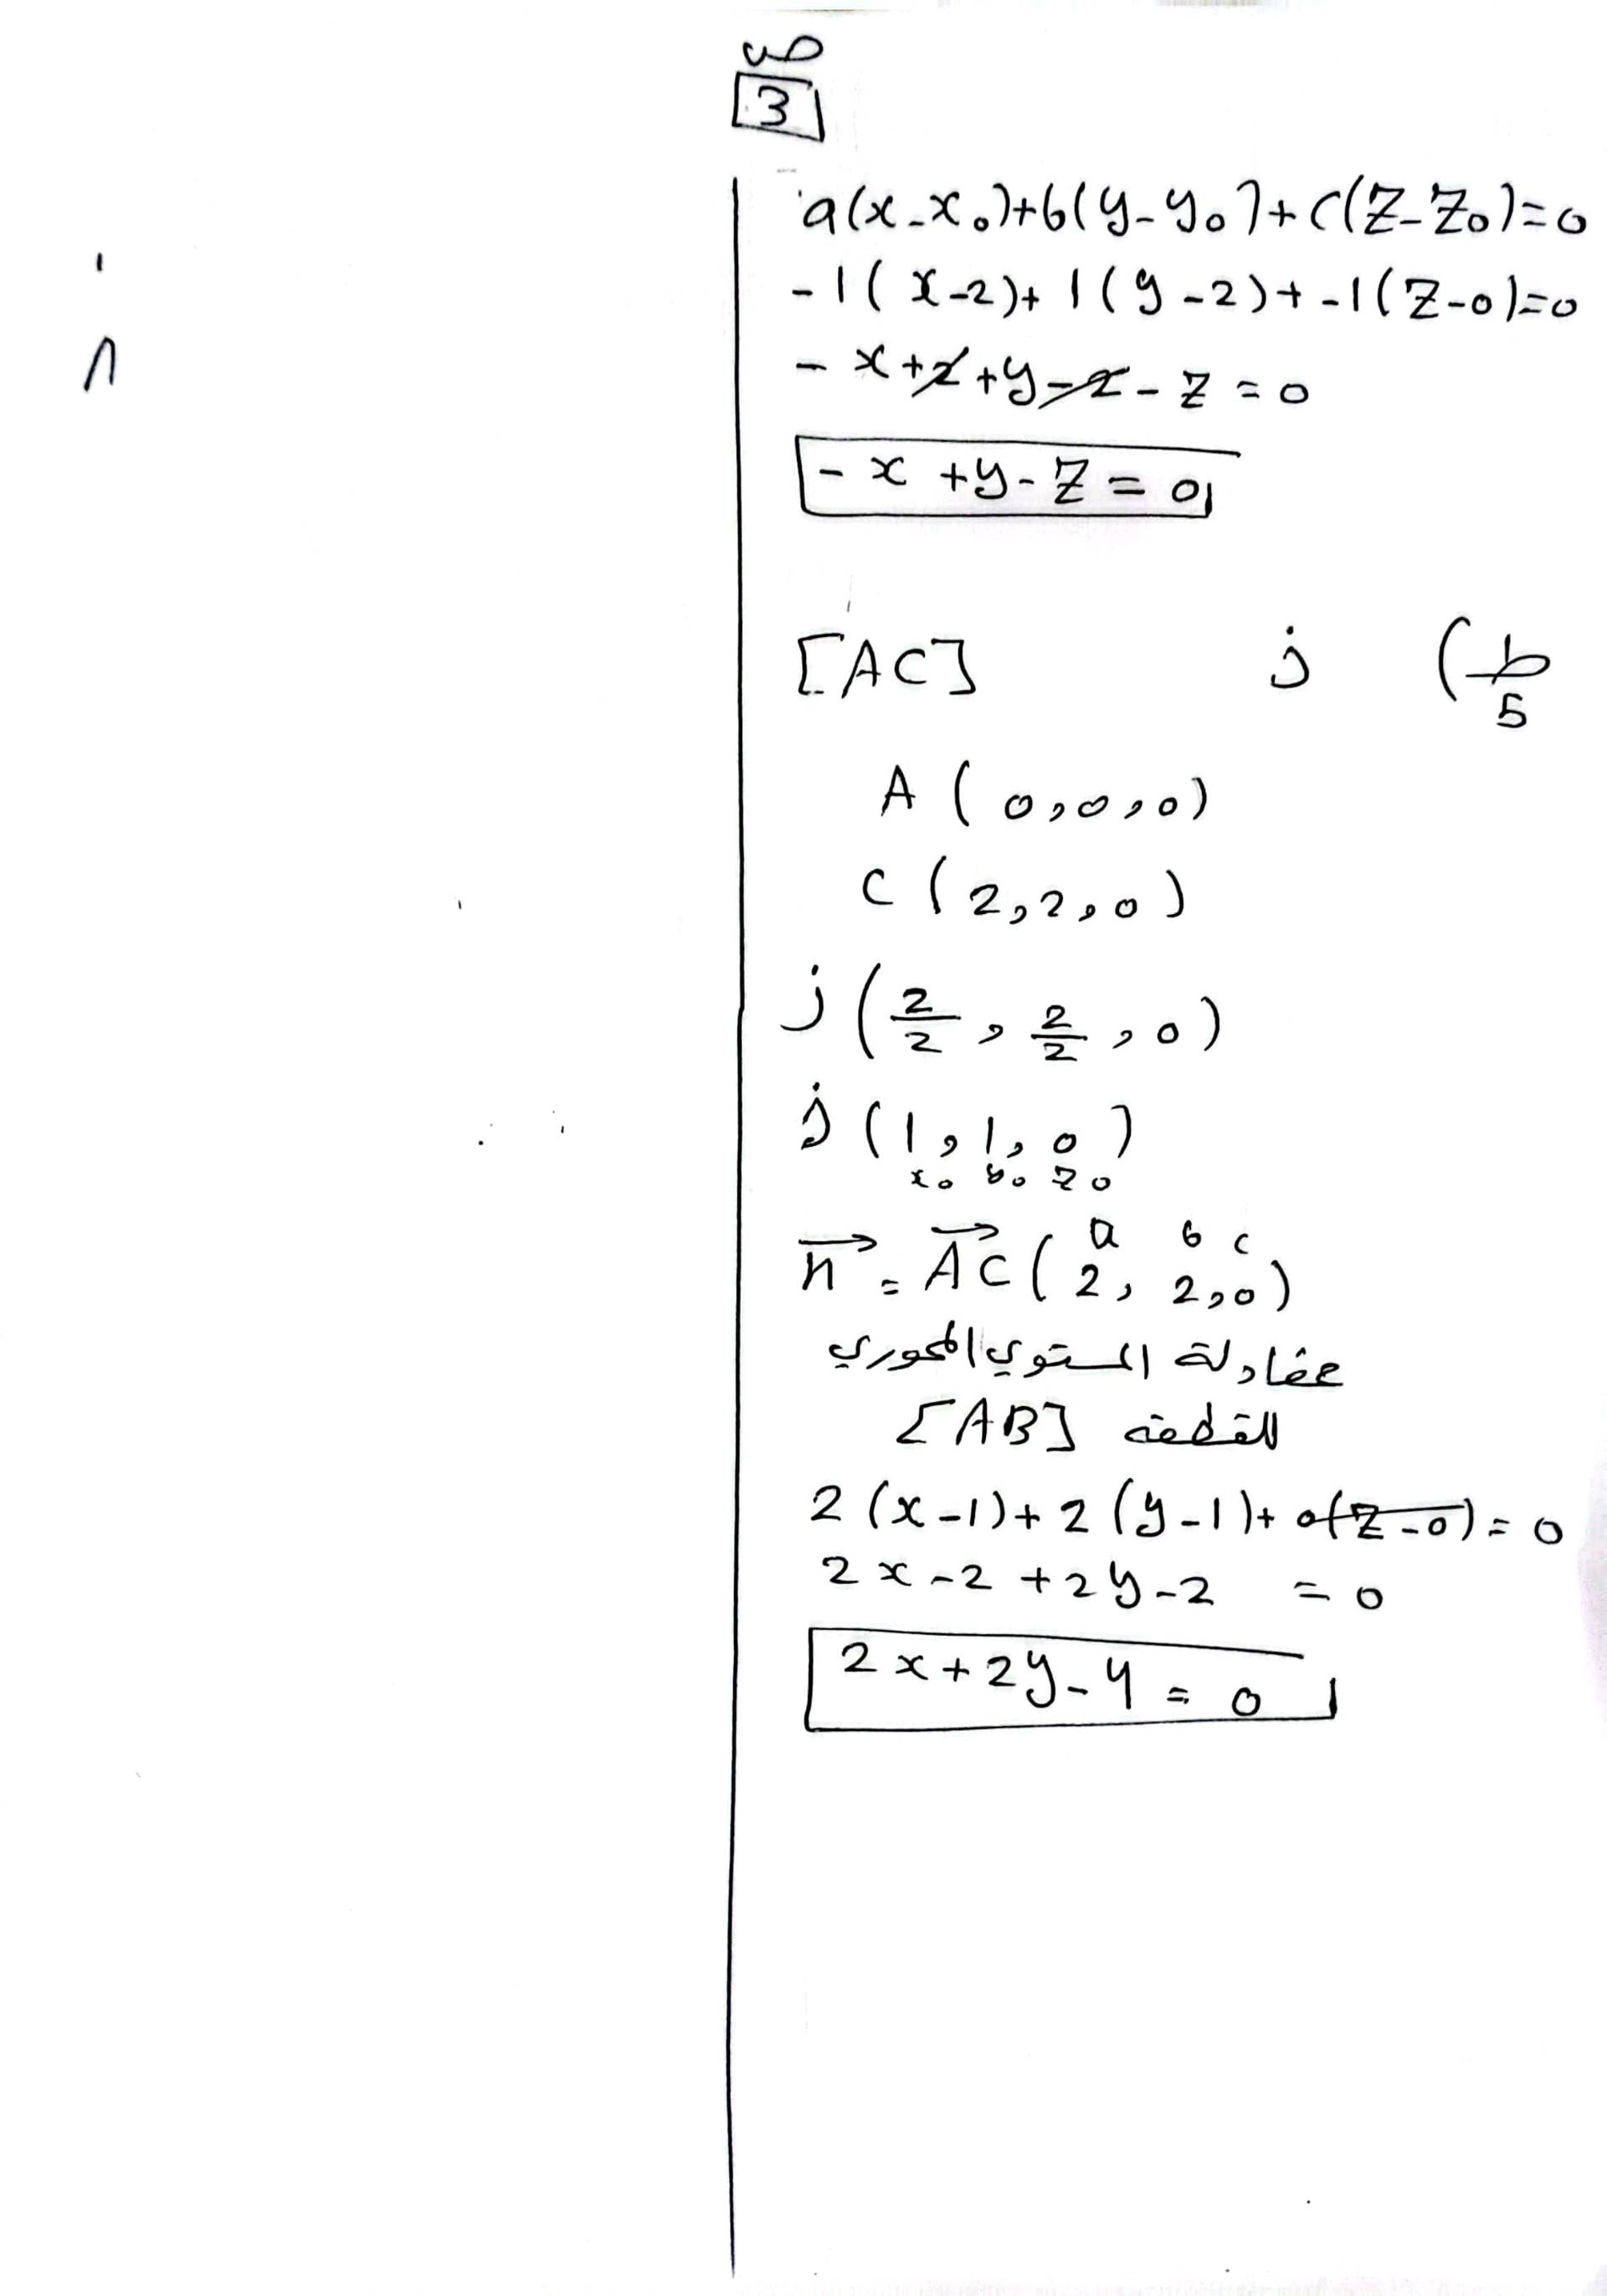 ص
3
a(x-x₀)+b(y-y₀)+c(z-z₀)=0
-1(x-2)+1(y-2)+-1(z-0)=0
-x+2+y-2-z=0
-x+y-z=0
[AC] j (ط
5
A(0,0,0)
C(2,2,0)
j(2/2, 2/2, 0)
j(1,1,0)
x₀ y₀ z₀
a b c
n⃗ = AC⃗(2, 2,0)
معادلة المستوي المحوري
للقطعة [AB]
2(x-1)+2(y-1)+0(z-0)=0
2x-2+2y-2 =0
2x+2y-4=0